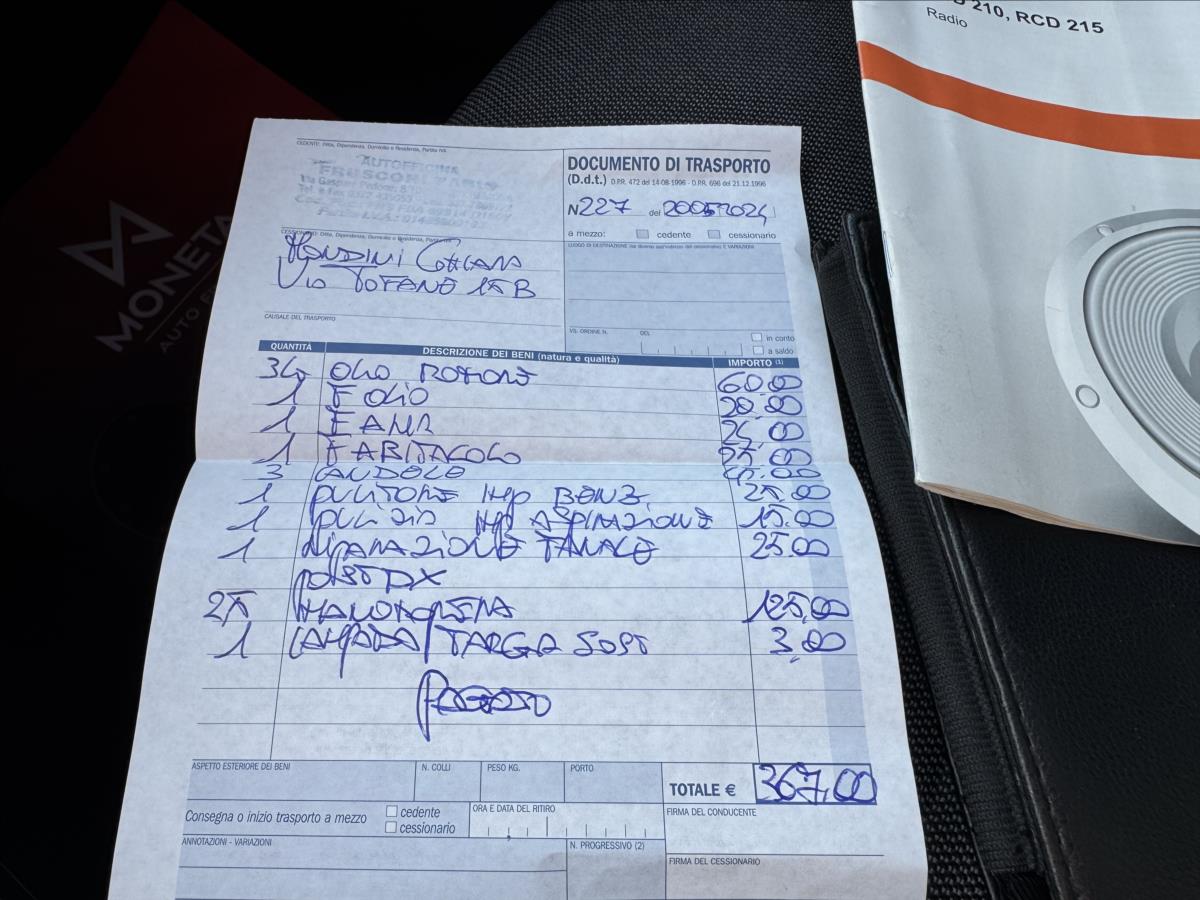 D 210, RCD 215
Radio
MONETA
AUTO
CEDENTE: Ditta, Dipendenza, Domicilio o Residenza, Partita IVA
AUTOFFICINA
DOCUMENTO DI TRASPORTO
(D.d.t.) D.P.R. 472 del 14-08-1996 - D.P.R. 696 del 21.12.1996
N 227 del 20052024
a mezzo: cedente cessionario
CESSIONARIO: Ditta, Dipendenza, Domicilio o Residenza, Partita IVA
LUOGO DI DESTINAZIONE (se diverso dall'indirizzo del cessionario) E VARIAZIONI
Via TOFANE 15 B
CAUSALE DEL TRASPORTO
VS. ORDINE N. DEL
in conto
a saldo
QUANTITÀ DESCRIZIONE DEI BENI (natura e qualità) IMPORTO (1)
OLIO MOTORE 60.00
1 F OLIO 20.00
1 F ARIA
1 F ABITACOLO
3 CANDELE
1 PULITORE Imp BENZ. 25.00
1 PULIZIA Imp ASPIRAZIONE 15.00
1 RIPARAZIONE FANALE 25.00
POST DX
MANODOPERA 125,00
1 LAMPADA TARGA SOST 3,00
PAGATO
ASPETTO ESTERIORE DEI BENI N. COLLI PESO KG. PORTO
TOTALE € 367,00
Consegna o inizio trasporto a mezzo cedente
cessionario
ORA E DATA DEL RITIRO
FIRMA DEL CONDUCENTE
ANNOTAZIONI - VARIAZIONI
N. PROGRESSIVO (2)
FIRMA DEL CESSIONARIO